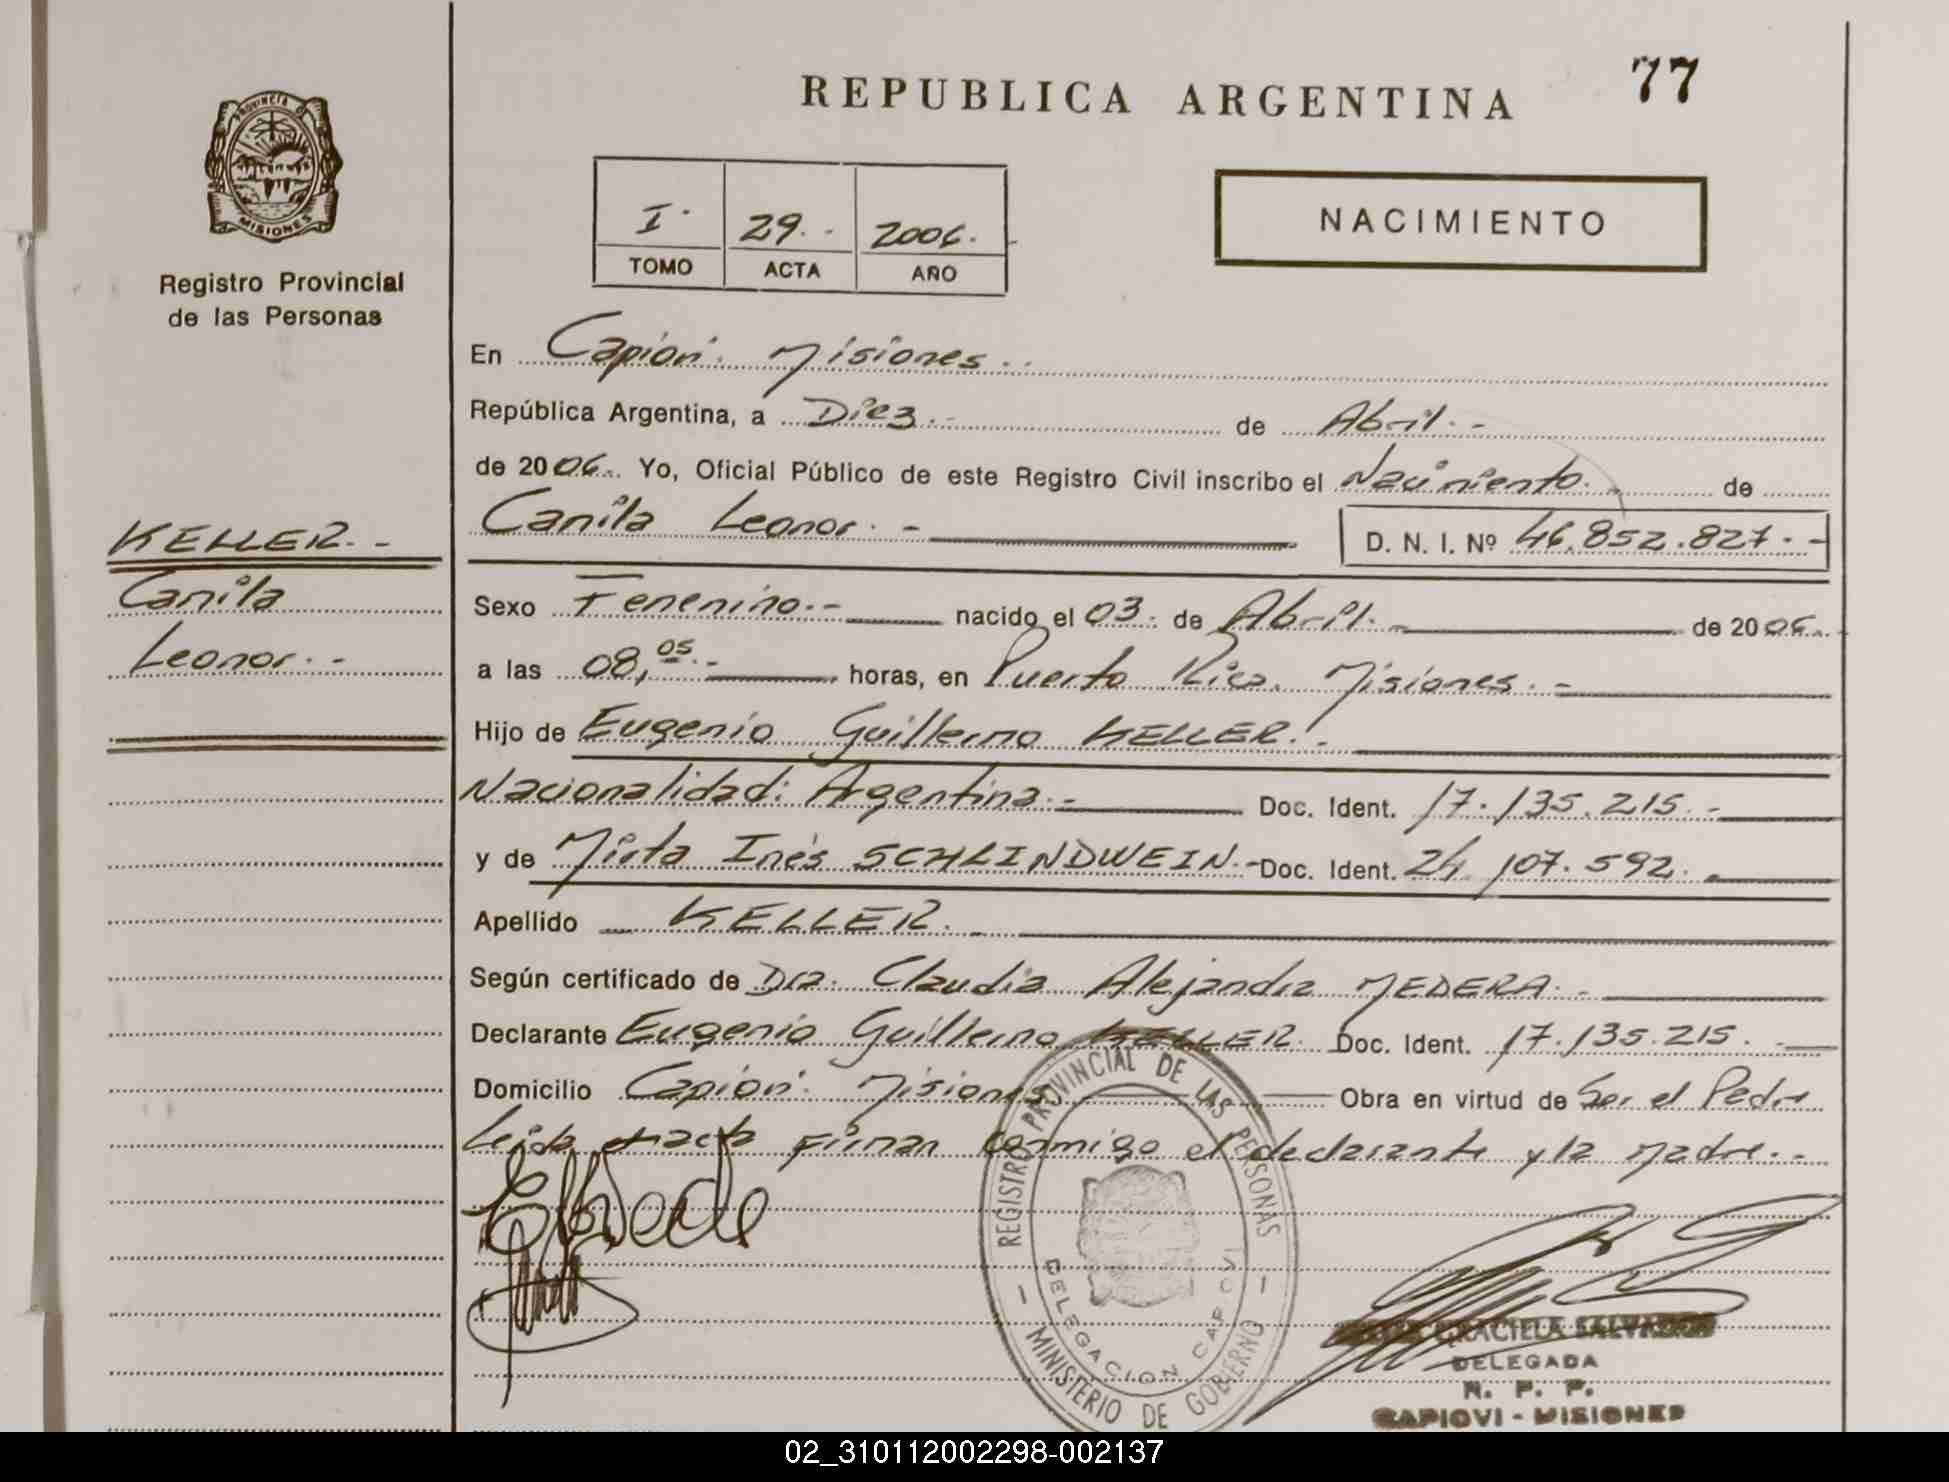 REPUBLICA ARGENTINA 77
PROVINCIA D
MISIONES
Registro Provincial
de las Personas
I. 29. - 2006.
TOMO ACTA AÑO
NACIMIENTO
En Capioví. Misiones.
República Argentina, a Diez. - de Abril. -
de 2006. Yo, Oficial Público de este Registro Civil inscribo el Nacimiento. - de
Camila Leonor. - D. N. I. Nº 46.852.827. -
KELLER. -
Camila
Leonor. -
Sexo Femenino. - nacido el 03. de Abril. - de 2006.
a las 08,05. - horas, en Puerto Rico. Misiones. -
Hijo de Eugenio Guillermo KELLER. -
Nacionalidad: Argentina. - Doc. Ident. 17.135.215. -
y de Mirta Inés SCHLINDWEIN. - Doc. Ident. 24.107.592.
Apellido KELLER. -
Según certificado de Dra. Claudia Alejandra MEDERA. -
Declarante Eugenio Guillermo KELLER. Doc. Ident. 17.135.215. -
Domicilio Capioví. Misiones Obra en virtud de Ser el Padre
Leída el acta firman conmigo el declarante y la madre. -
REGISTRO PROVINCIAL DE LAS PERSONAS
MINISTERIO DE GOBIERNO
DELEGACION CAPIOVI
GRACIELA SALVADOR
DELEGADA
R. P. P.
CAPIOVI - MISIONES
02_310112002298-002137